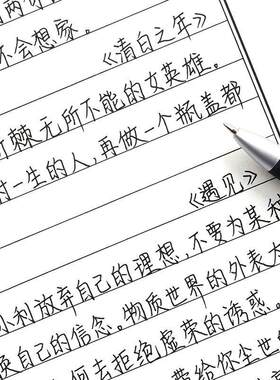 不会想家。
《清白之年》
荆棘无所不能的女英雄。
一生的人,再做一个瓶盖都
《遇见》
小利放弃自己的理想,不要为某种
自己的信念。物质世界的外表
何去拒绝虚荣的诱惑
带给你尘世